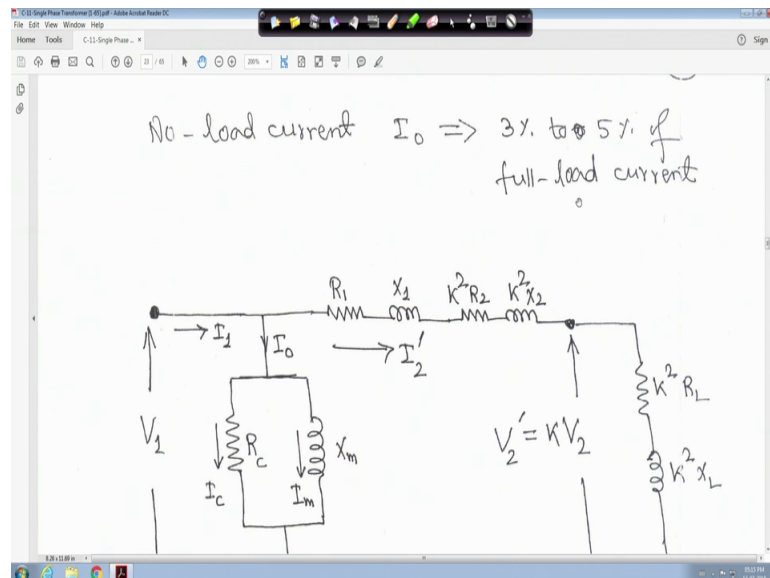 C-11-Single Phase Transformer [1-65].pdf - Adobe Acrobat Reader DC
File Edit View Window Help
Home Tools C-11-Single Phase ... × Sign
23 / 65 200%
No-load current I₀ ⇒ 3% to 5% of
full-load current
R₁ X₁ K²R₂ K²X₂
I₁ I₀ I₂′
V₁ R_c X_m V₂′ = KV₂ K²R_L
I_c I_m K²X_L
8.26 x 11.69 in
05:15 PM